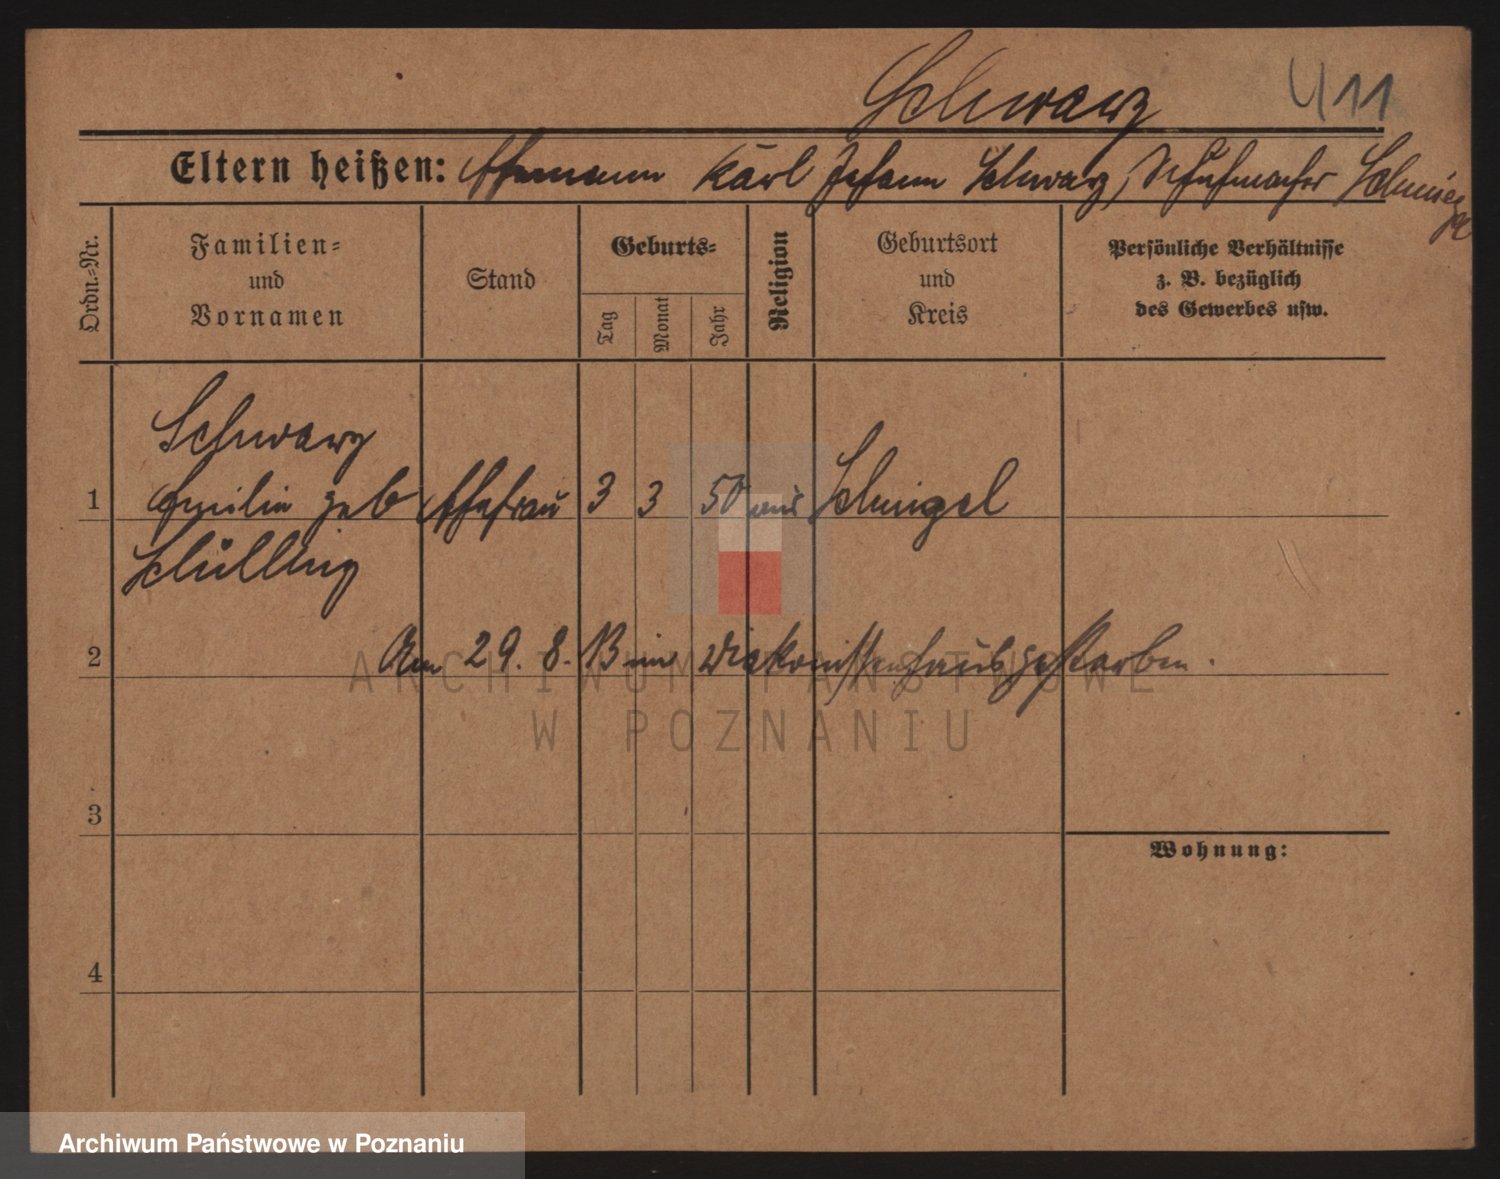 Schwarz 411
Eltern heißen: Ehemann Karl Johann Schwarz, Schuhmacher Schmiegel
Ordn.-Nr.
Familien-
und
Vornamen
Stand
Geburts-
Tag
Monat
Jahr
Religion
Geburtsort
und
Kreis
Persönliche Verhältnisse
z. B. bezüglich
des Gewerbes usw.
Schwarz
1 Emilie geb Ehefrau 3 3 50 aus Schmigel
Schilling
2 Am 29. 8. 13 im Diakonissenhaus gestorben.
ARCHIWUM PAŃSTWOWE
W POZNANIU
3
Wohnung:
4
Archiwum Państwowe w Poznaniu